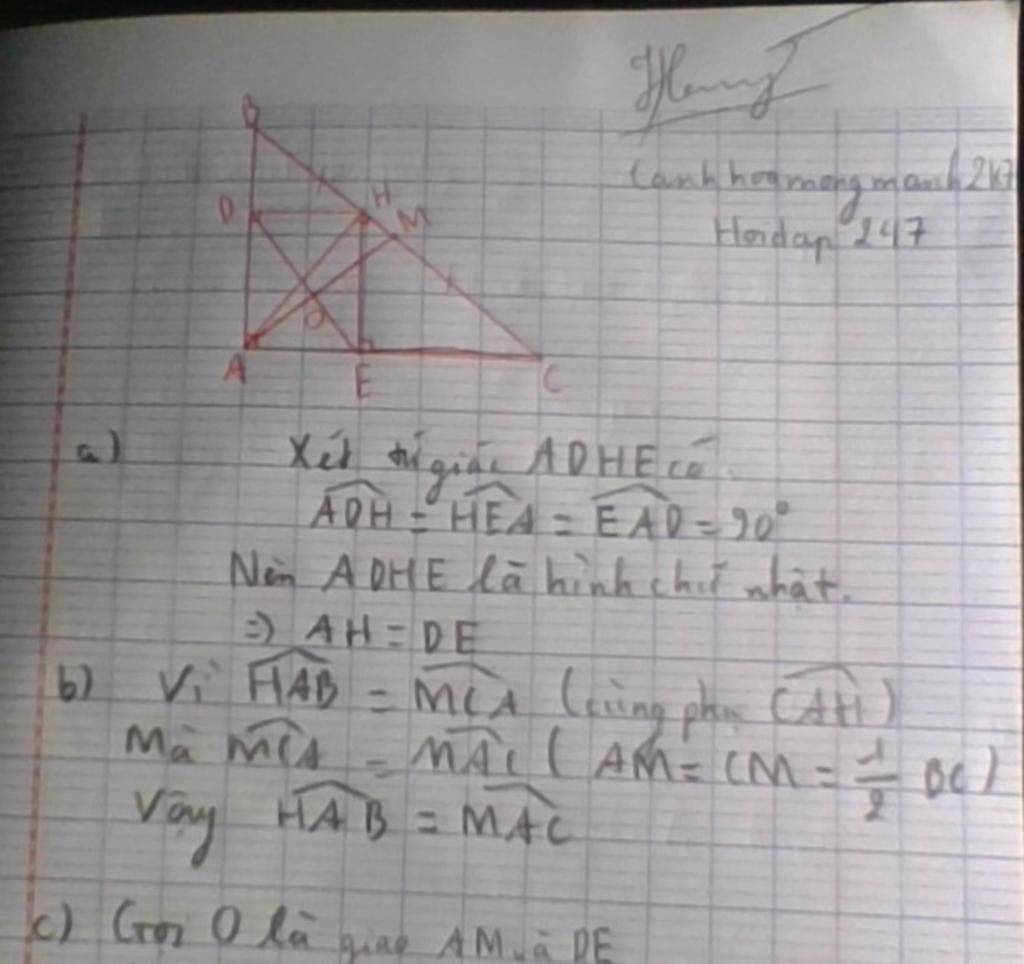 Canhhoamongmanh2k7
Hoidap 247
B
D
H
M
O
A
E
C
a) Xét tứ giác ADHE có
ADH = HEA = EAD = 90°
Nên ADHE là hình chữ nhật.
=) AH = DE
b) Vì HAB = MCA (cùng phụ CAH)
Mà MCA = MAC ( AM = CM = 1/2 BC)
Vậy HAB = MAC
c) Gọi O là giao AM và DE